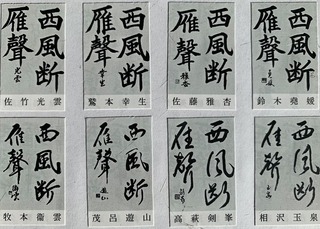 西風断
雁聲
光雲
佐竹光雲
西風断
雁聲
幸生
鷲本幸生
西風断
雁聲
雅杏
佐藤雅杏
西風断
雁聲
鈴木堯媛
西風断
雁聲
牧本衞雲
西風断
雁聲
茂呂遊山
西風断
雁聲
高萩剣峯
西風断
雁聲
相沢玉泉